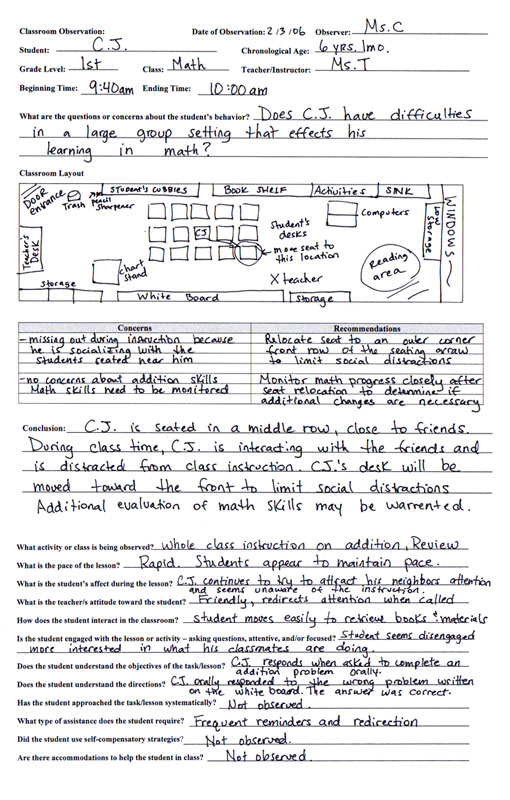 Classroom Observation: Date of Observation: 2/3/06 Observer: Ms. C
Student: C.J. Chronological Age: 6 yrs. 1mo.
Grade Level: 1st Class: Math Teacher/Instructor: Ms. T
Beginning Time: 9:40am Ending Time: 10:00am
What are the questions or concerns about the student's behavior? Does C.J. have difficulties
in a large group setting that effects his
learning in math?
Classroom Layout
DOOR
entrance
Trash
pencil
sharpener
STUDENT'S CUBBIES
BOOK SHELF
Activities
SINK
WINDOWS
Low
Storage
Computers
Student's
desks
CJ
← move seat to
this location
Teacher's
Desk
Chart
stand
X teacher
Reading
area
Storage
White Board
Storage
Concerns Recommendations
- missing out during insruction because Relocate seat to an outer corner
he is socializing with the front row of the seating arraw
students seated near him to limit social distractions
-no concerns about addition skills Monitor math progress closely after
Math skills need to be monitored seat relocation to determine if
additional changes are necessary
Conclusion: C.J. is seated in a middle row, close to friends.
During class time, C.J. is interacting with the friends and
is distracted from class instruction. CJ.'s desk will be
moved toward the front to limit social distractions
Additional evaluation of math skills may be warrented.
What activity or class is being observed? Whole class instruction on addition, Review
What is the pace of the lesson? Rapid. Students appear to maintain pace.
What is the student's affect during the lesson? C.J. continues to try to attract his neighbors attention
and seems unaware of the instruction.
What is the teacher's attitude toward the student? Friendly, redirects attention when called
How does the student interact in the classroom? student moves easily to retrieve books & materials
Is the student engaged with the lesson or activity – asking questions, attentive, and/or focused? Student seems disengaged
more interested in what his classmates are doing.
Does the student understand the objectives of the task/lesson? C.J. responds when asked to complete an
addition problem orally.
Does the student understand the directions? C.J. orally responded to the wrong problem written
on the white board. The answer was correct.
Has the student approached the task/lesson systematically? Not observed.
What type of assistance does the student require? Frequent reminders and redirection
Did the student use self-compensatory strategies? Not observed.
Are there accommodations to help the student in class? Not observed.